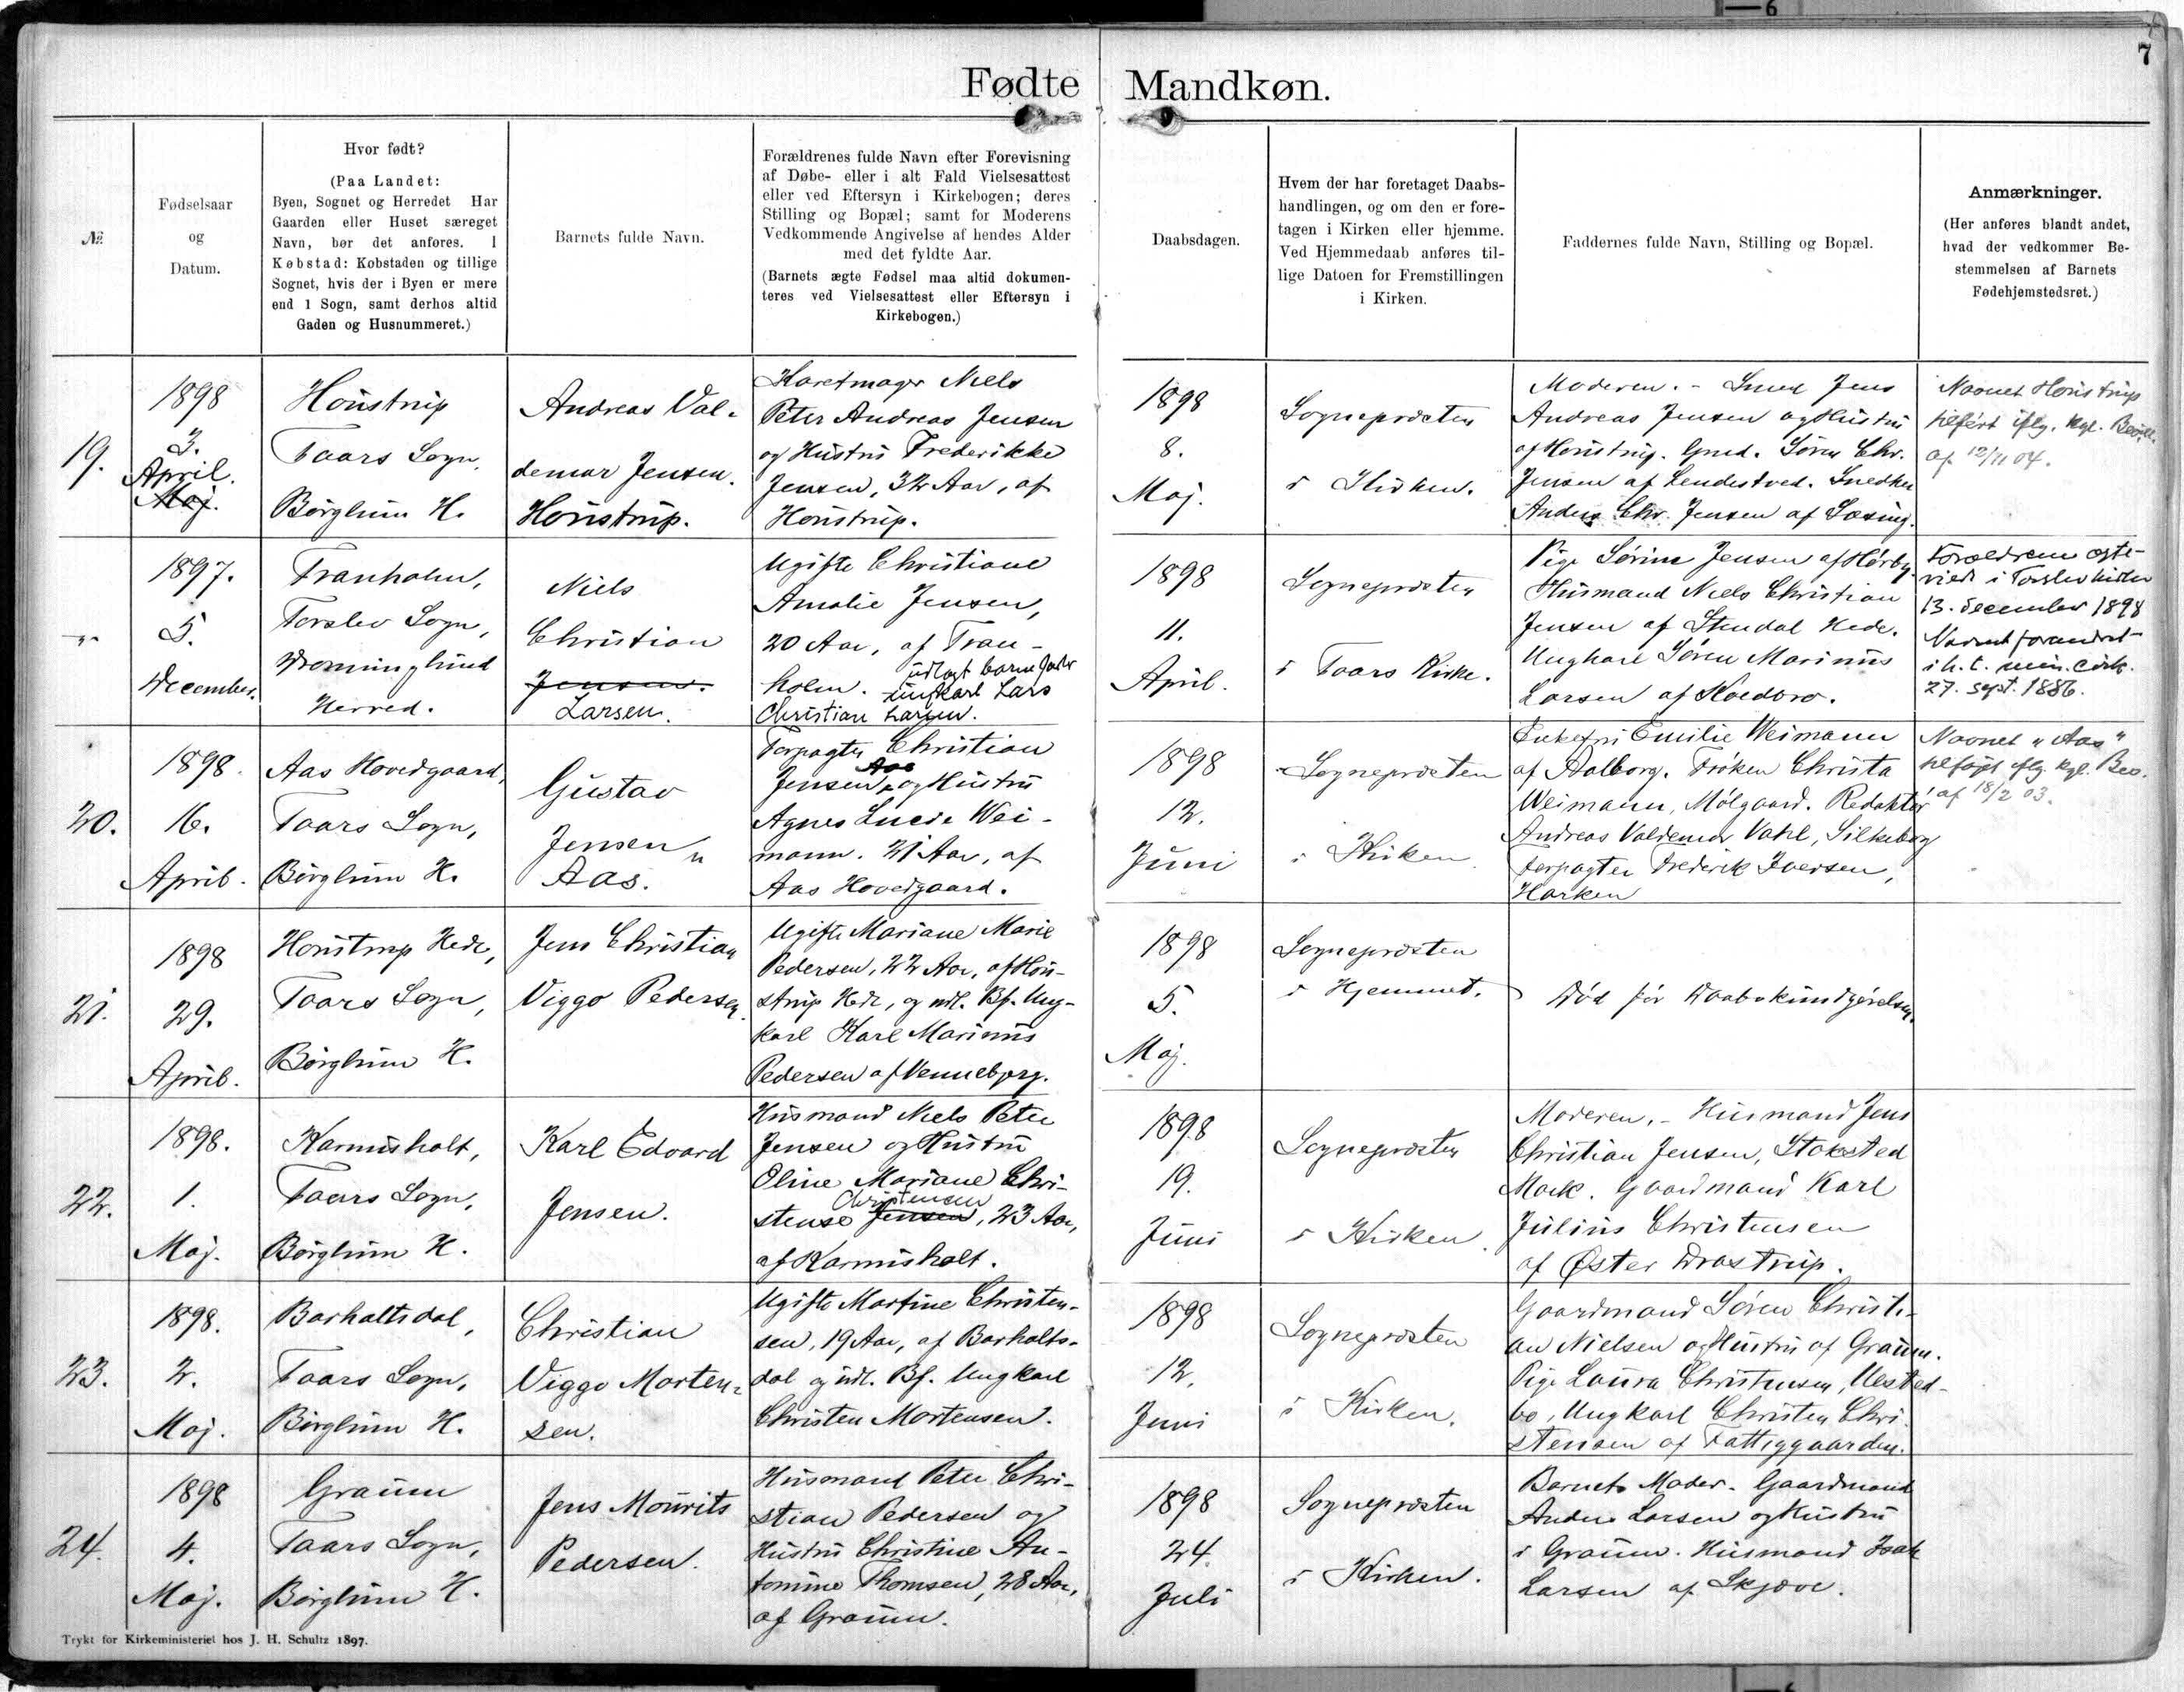 7
Fødte Mandkøn.
№
Fødselsaar
og
Datum.
Hvor født?
(Paa Landet:
Byen, Sognet og Herredet Har
Gaarden eller Huset særeget
Navn, bør det anføres. I
Købstad: Købstaden og tillige
Sognet, hvis der i Byen er mere
end 1 Sogn, samt derhos altid
Gaden og Husnummeret.)
Barnets fulde Navn.
Forældrenes fulde Navn efter Forevisning
af Døbe- eller i alt Fald Vielsesattest
eller ved Eftersyn i Kirkebogen; deres
Stilling og Bopæl; samt for Moderens
Vedkommende Angivelse af hendes Alder
med det fyldte Aar.
(Barnets ægte Fødsel maa altid dokumen-
teres ved Vielsesattest eller Eftersyn i
Kirkebogen.)
Daabsdagen.
Hvem der har foretaget Daabs-
handlingen, og om den er fore-
tagen i Kirken eller hjemme.
Ved Hjemmedaab anføres til-
lige Datoen for Fremstillingen
i Kirken.
Faddernes fulde Navn, Stilling og Bopæl.
Anmærkninger.
(Her anføres blandt andet,
hvad der vedkommer Be-
stemmelsen af Barnets
Fødehjemstedsret.)
19.
1898
3.
April.
Maj.
Houstrup
Taars Sogn,
Børglum H.
Andreas Val-
demar Jensen.
Houstrup.
Karetmager Niels
Peter Andreas Jensen
og Hustru Frederikke
Jensen, 32 Aar, af
Houstrup.
1898
8.
Maj.
Sognepræsten
i Kirken.
Moderen. - Smed Jens
Andreas Jensen og Hustru
af Houstrup. Gmd. Søren Chr.
Jensen af Lendestved. Snedker
Anders Chr. Jensen af Sæsing.
Navnet Houstrup
tilført iflg. Kgl. Bevill.
af 12/11 04.
"
1897.
5.
December.
Tranholm,
Torslev Sogn,
Dronninglund
Herred.
Niels
Christian
Jensen.
Larsen.
Ugifte Christiane
Amalie Jensen,
20 Aar, af Tran-
holm. udlagt barnefader
ungkarl Lars
Christian Larsen.
1898
11.
April.
Sognepræsten
i Taars Kirke.
Pige Sørine Jensen af Hørby.
Husmand Niels Christian
Jensen af Stendal Hede.
Ungkarl Søren Marinus
Larsen af Hvedbro.
Forældrene ægte-
viede i Torslev kirke
13. december 1898
Navnet forandret
i h. t. min. cirk.
27. sept. 1886.
20.
1898.
16.
April.
Aas Hovedgaard,
Taars Sogn,
Børglum H.
Gustav
Jensen "
Aas.
Forpagter Christian
Aas
Jensen og Hustru
Agnes Lucie Wei-
mann. 21 Aar, af
Aas Hovedgaard.
1898
12.
Juni
Sognepræsten
i Kirken
Enkefru Emilie Weimann
af Aalborg. Frøken Christa
Weimann, Mølgaard. Redaktør
Andreas Valdemar Vahl, Silkeborg
Forpagter Frederik Iversen,
Harken
Navnet "Aas"
tilføjet iflg. kgl. Bev.
af 18/2 03.
21.
1898
29.
April.
Houstrup Hede,
Taars Sogn,
Børglum H.
Jens Christian
Viggo Pedersen.
Ugifte Mariane Marie
Pedersen, 22 Aar, af Hou-
strup Hede, og udl. Bf. Ung-
karl Karl Marinus
Pedersen af Vennebjerg.
1898
5.
Maj.
Sognepræsten
i Hjemmet.
Død før Daabskundgørelsen.
22.
1898.
1.
Maj.
Karmisholt,
Taars Sogn,
Børglum H.
Karl Edvard
Jensen.
Husmand Niels Peter
Jensen og Hustru
Oline Mariane Chri-
Christensen
stense Jensen, 23 Aar,
af Karmisholt.
1898
19.
Juni
Sognepræsten
i Kirken.
Moderen. - Husmand Jens
Christian Jensen, Stoksted
Mark. Gaardmand Karl
Julius Christensen
af Øster Drastrup.
23.
1898.
2.
Maj.
Barholtsdal,
Taars Sogn,
Børglum H.
Christian
Viggo Morten-
sen.
Ugifte Martine Christen-
sen, 19 Aar, af Barholts-
dal og udl. Bf. Ungkarl
Christen Mortensen.
1898
12.
Juni
Sognepræsten
i Kirken.
Gaardmand Søren Christi-
an Nielsen og Hustru af Graum.
Pige Laura Christensen, Ilested-
bo, Ungkarl Christen Chri-
stensen af Fattiggaarden.
24.
1898
4.
Maj.
Graum
Taars Sogn,
Børglum H.
Jens Mourits
Pedersen.
Husmand Peter Chri-
stian Pedersen og
Hustru Christine An-
tomine Thomsen, 28 Aar,
af Graum.
1898
24.
Juli
Sognepræsten
i Kirken.
Barnets Moder. Gaardmand
Anders Larsen og Hustru
i Graum. Husmand Isak
Larsen af Skjæve.
Trykt for Kirkeministeriet hos J. H. Schultz 1897.